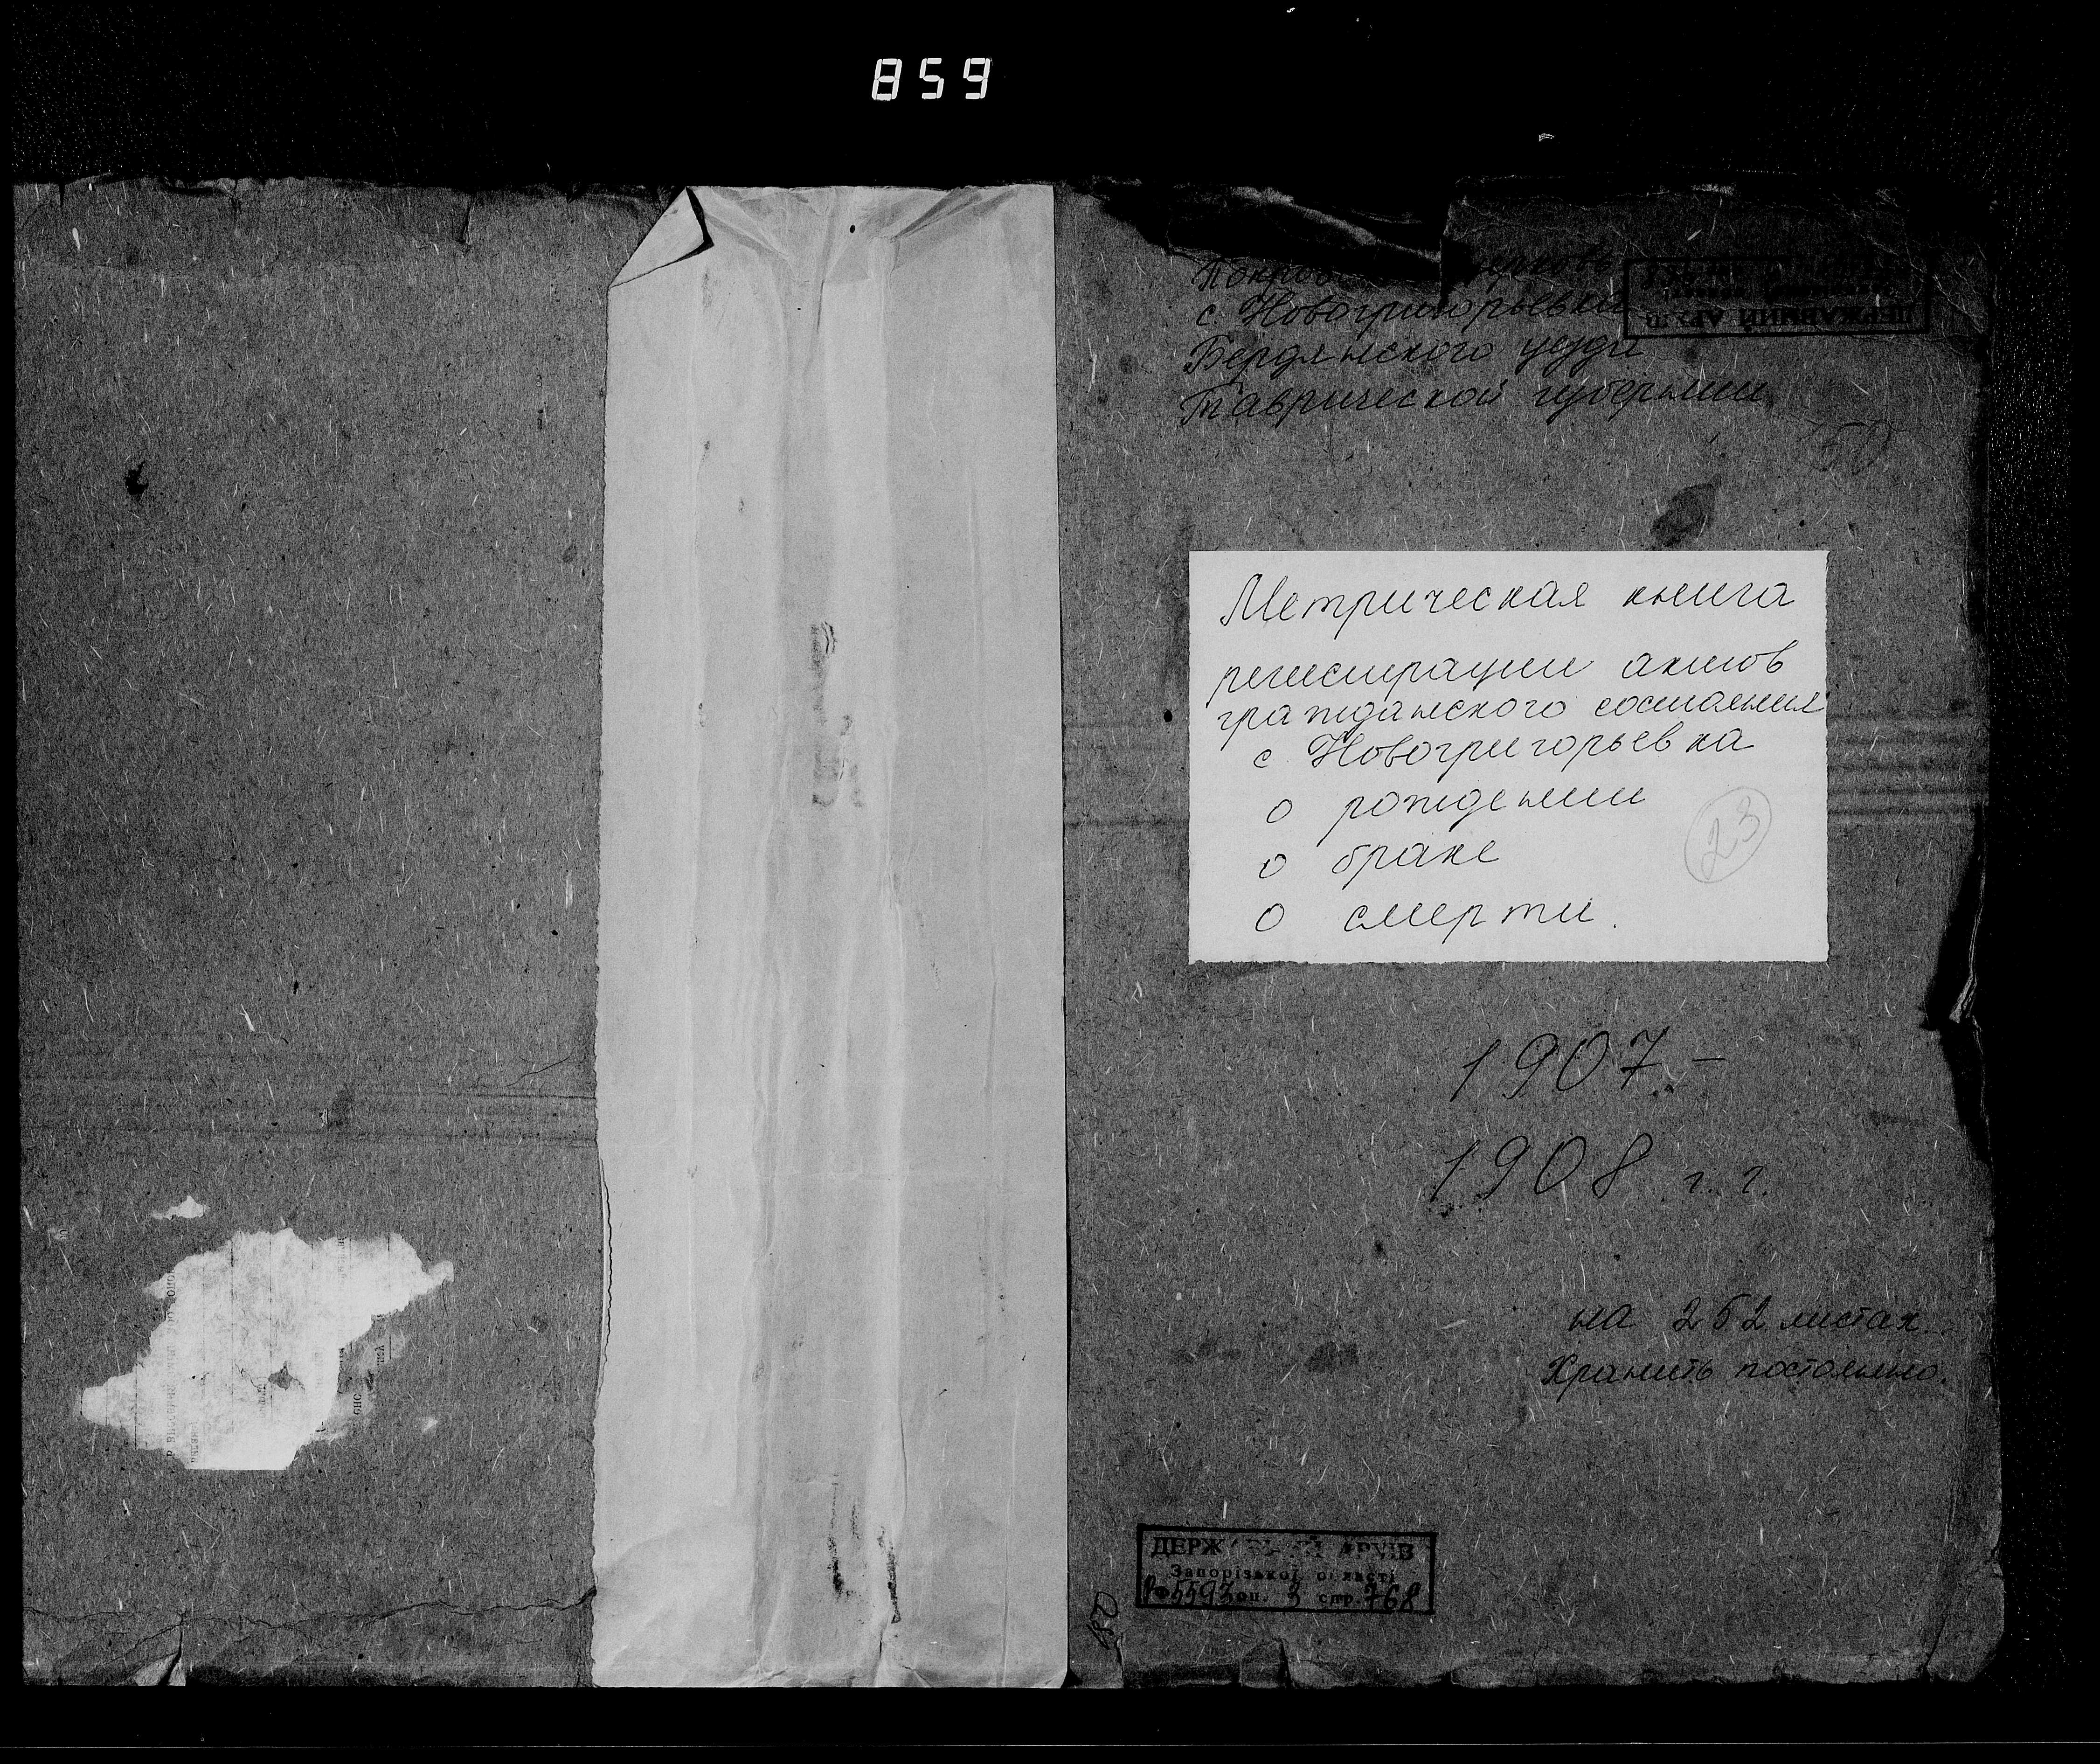 859
с. Новогригорьевка
Бердянского уезда
Таврической губернии
Метрическая книга
регистрации актов
гражданского состояния
с Новогригорьевка
о рождении
о браке
о смерти.
23
1907.-
1908 г. г.
на 252 листах.
Хранить постоянно.
ДЕРЖАВНИЙ АРХІВ
Запорізької області
Рф5593 оп. 3 спр. 768